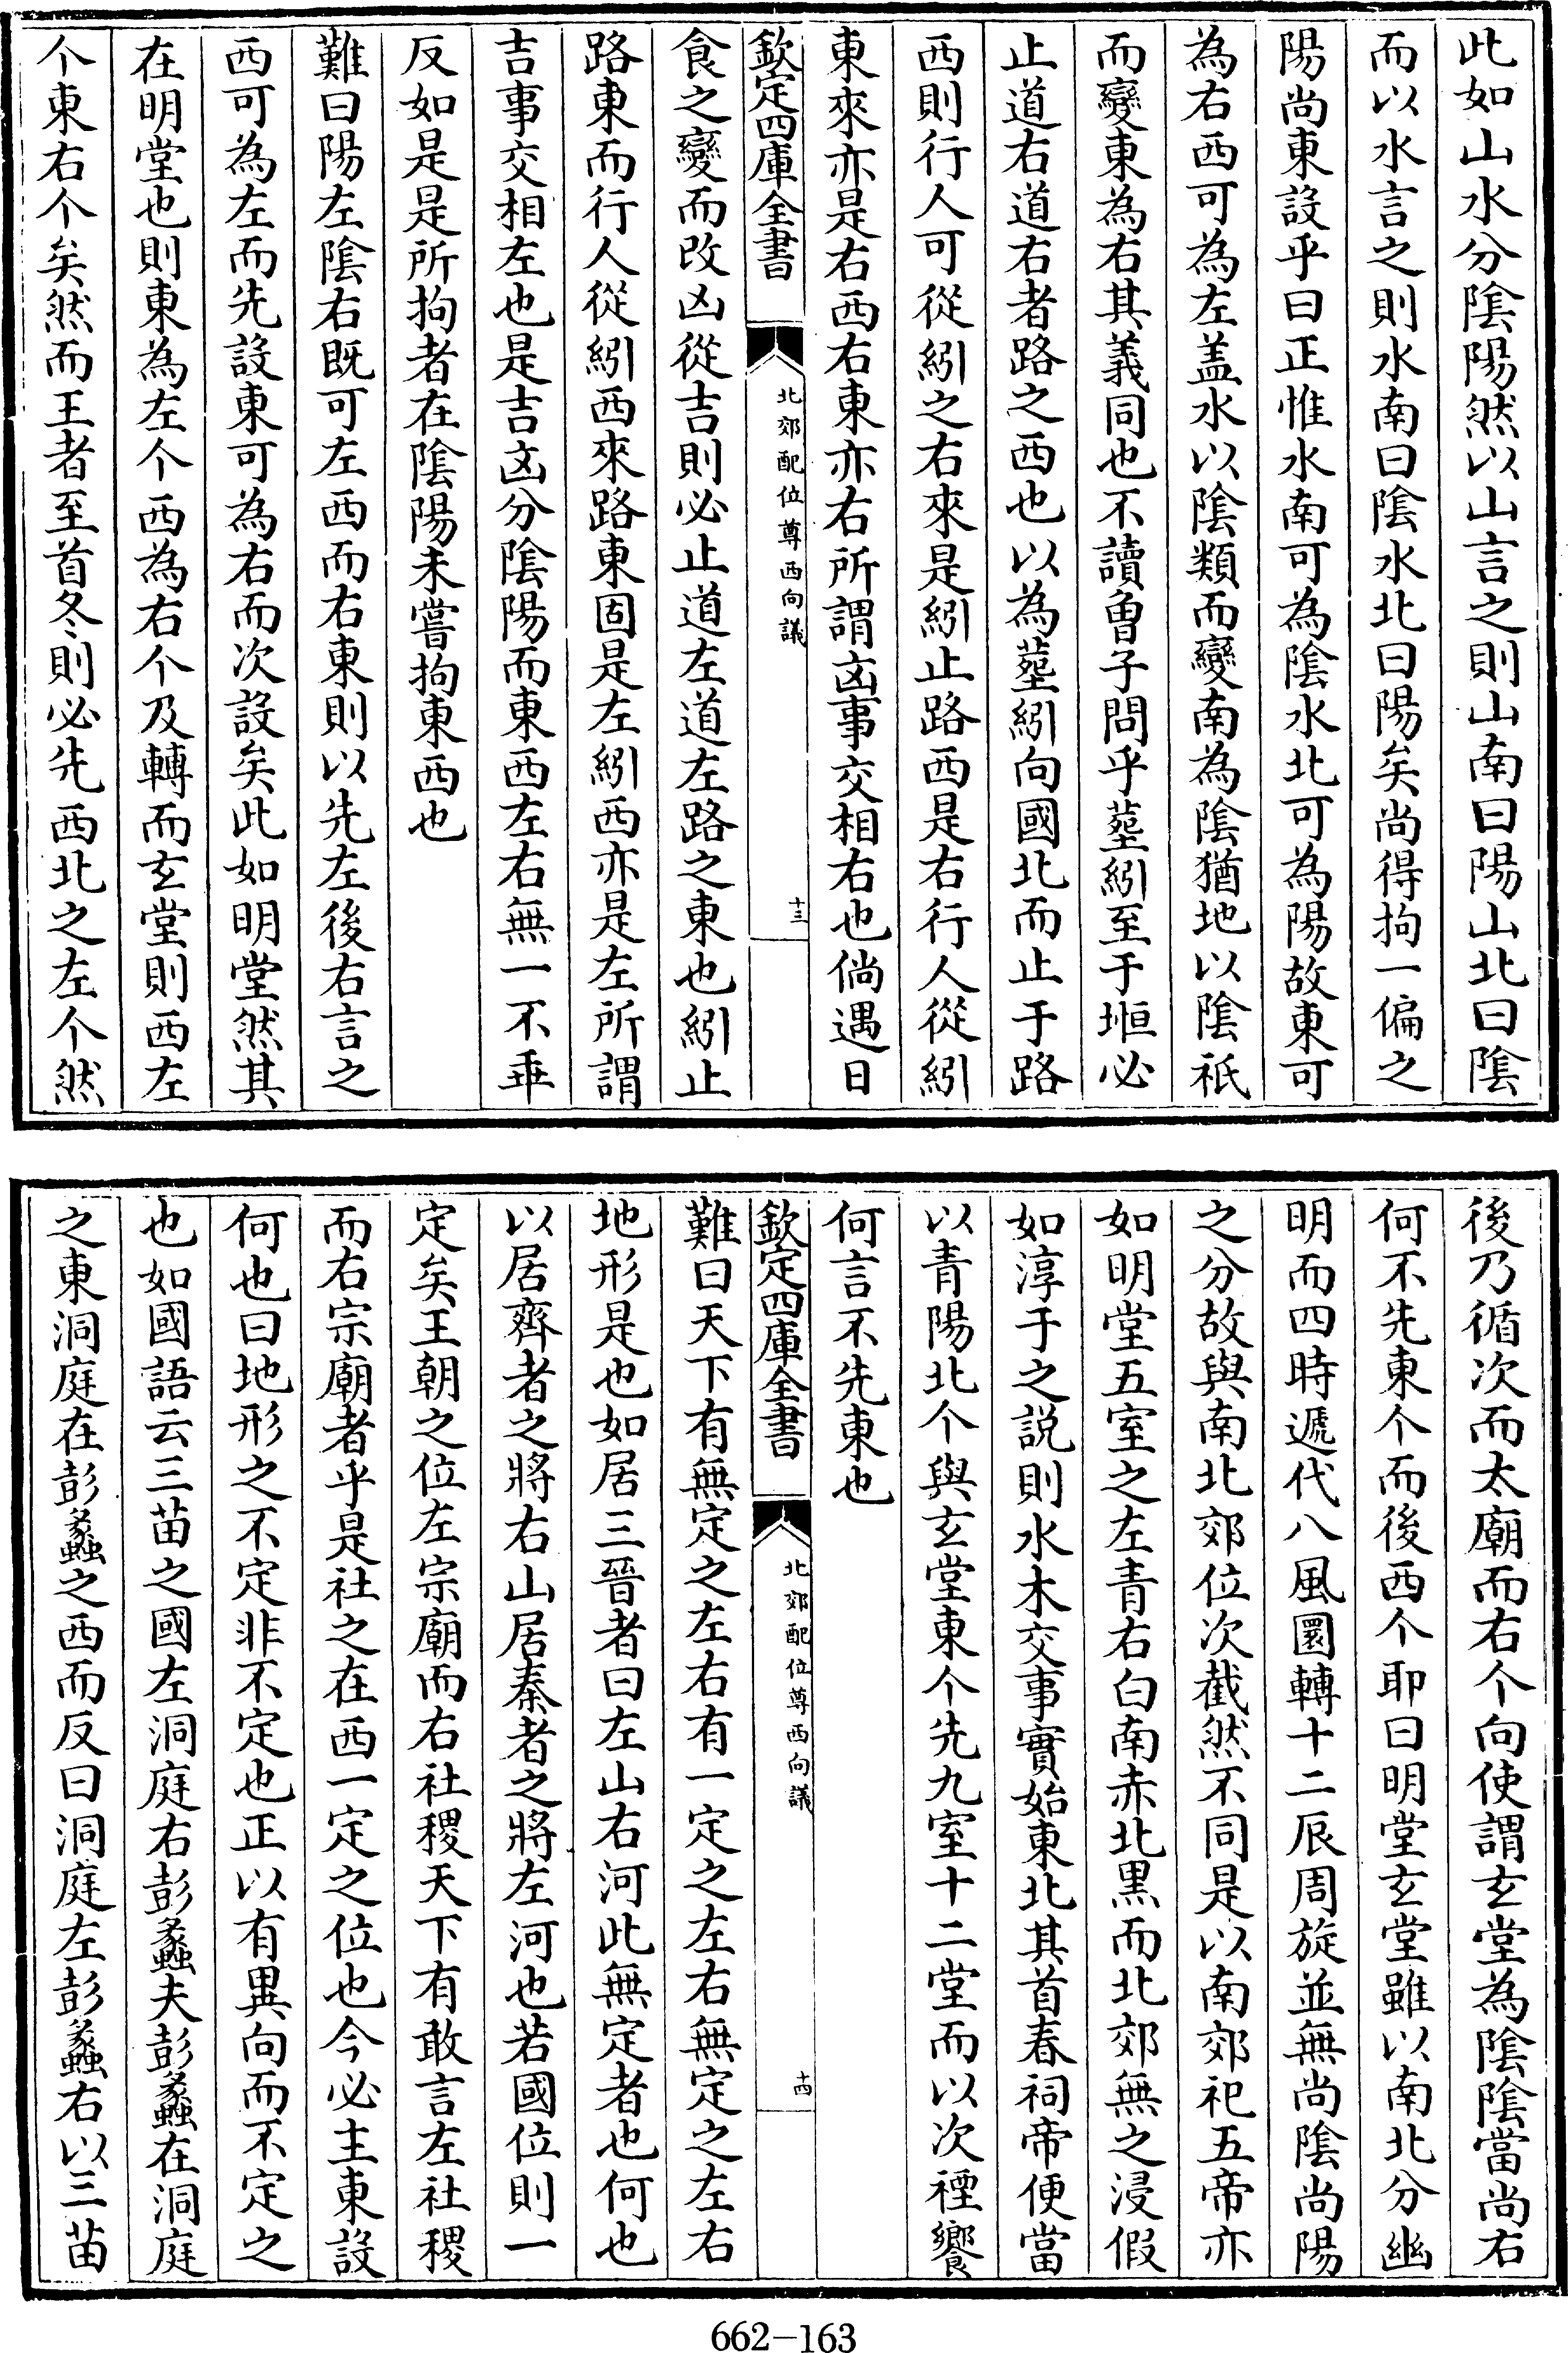 此如山水分陰陽然以山言之則山南曰陽山北曰陰
而以水言之則水南曰陰水北曰陽矣尚得拘一偏之
陽尚東設乎曰正惟水南可為陰水北可為陽故東可
為右西可為左盖水以陰類而變南為陰猶地以陰祇
而變東為右其義同也不讀曾子問乎塟紖至于堩必
止道右道右者路之西也以為塟紖向國北而止于路
西則行人可從紖之右來是紖止路西是右行人從紖
東來亦是右西右東亦右所謂凶事交相右也倘遇日
欽定四庫全書
北郊配位尊西向議
十三
食之變而改凶從吉則必止道左道左路之東也紖止
路東而行人從紖西來路東固是左紖西亦是左所謂
吉事交相左也是吉凶分陰陽而東西左右無一不乖
反如是是所拘者在陰陽未嘗拘東西也
難曰陽左陰右既可左西而右東則以先左後右言之
西可為左而先設東可為右而次設矣此如明堂然其
在明堂也則東為左个西為右个及轉而玄堂則西左
个東右个矣然而王者至首冬則必先西北之左个然
後乃循次而太廟而右个向使謂玄堂為陰陰當尚右
何不先東个而後西个耶曰明堂玄堂雖以南北分幽
明而四時遞代八風圜轉十二辰周旋並無尚陰尚陽
之分故與南北郊位次截然不同是以南郊祀五帝亦
如明堂五室之左青右白南赤北黒而北郊無之浸假
如淳于之説則水木交事實始東北其首春祠帝便當
以青陽北个與玄堂東个先九室十二堂而以次禋饗
何言不先東也
欽定四庫全書
北郊配位尊西向議
十四
難曰天下有無定之左右有一定之左右無定之左右
地形是也如居三晉者曰左山右河此無定者也何也
以居齊者之將右山居秦者之將左河也若國位則一
定矣王朝之位左宗廟而右社稷天下有敢言左社稷
而右宗廟者乎是社之在西一定之位也今必主東設
何也曰地形之不定非不定也正以有異向而不定之
也如國語云三苗之國左洞庭右彭蠡夫彭蠡在洞庭
之東洞庭在彭蠡之西而反曰洞庭左彭蠡右以三苗
662-163